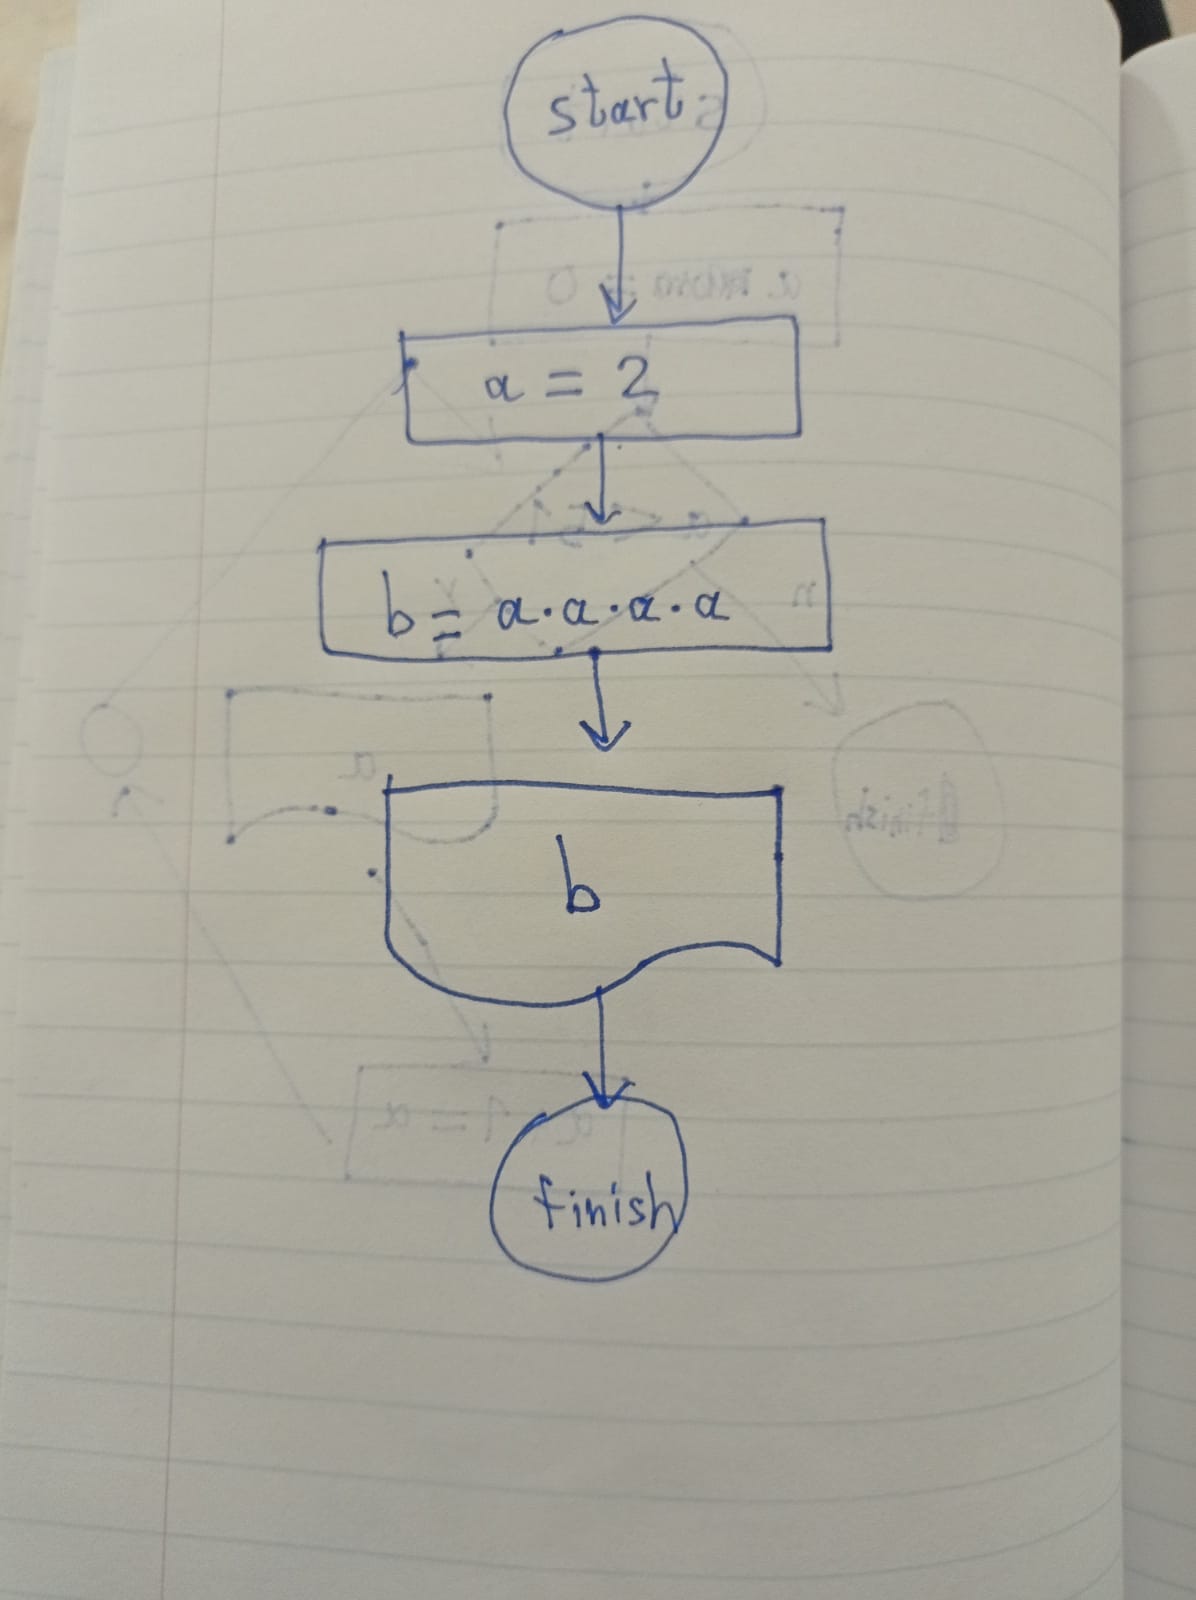 start
a = 2
b = a · a · a · a
b
finish